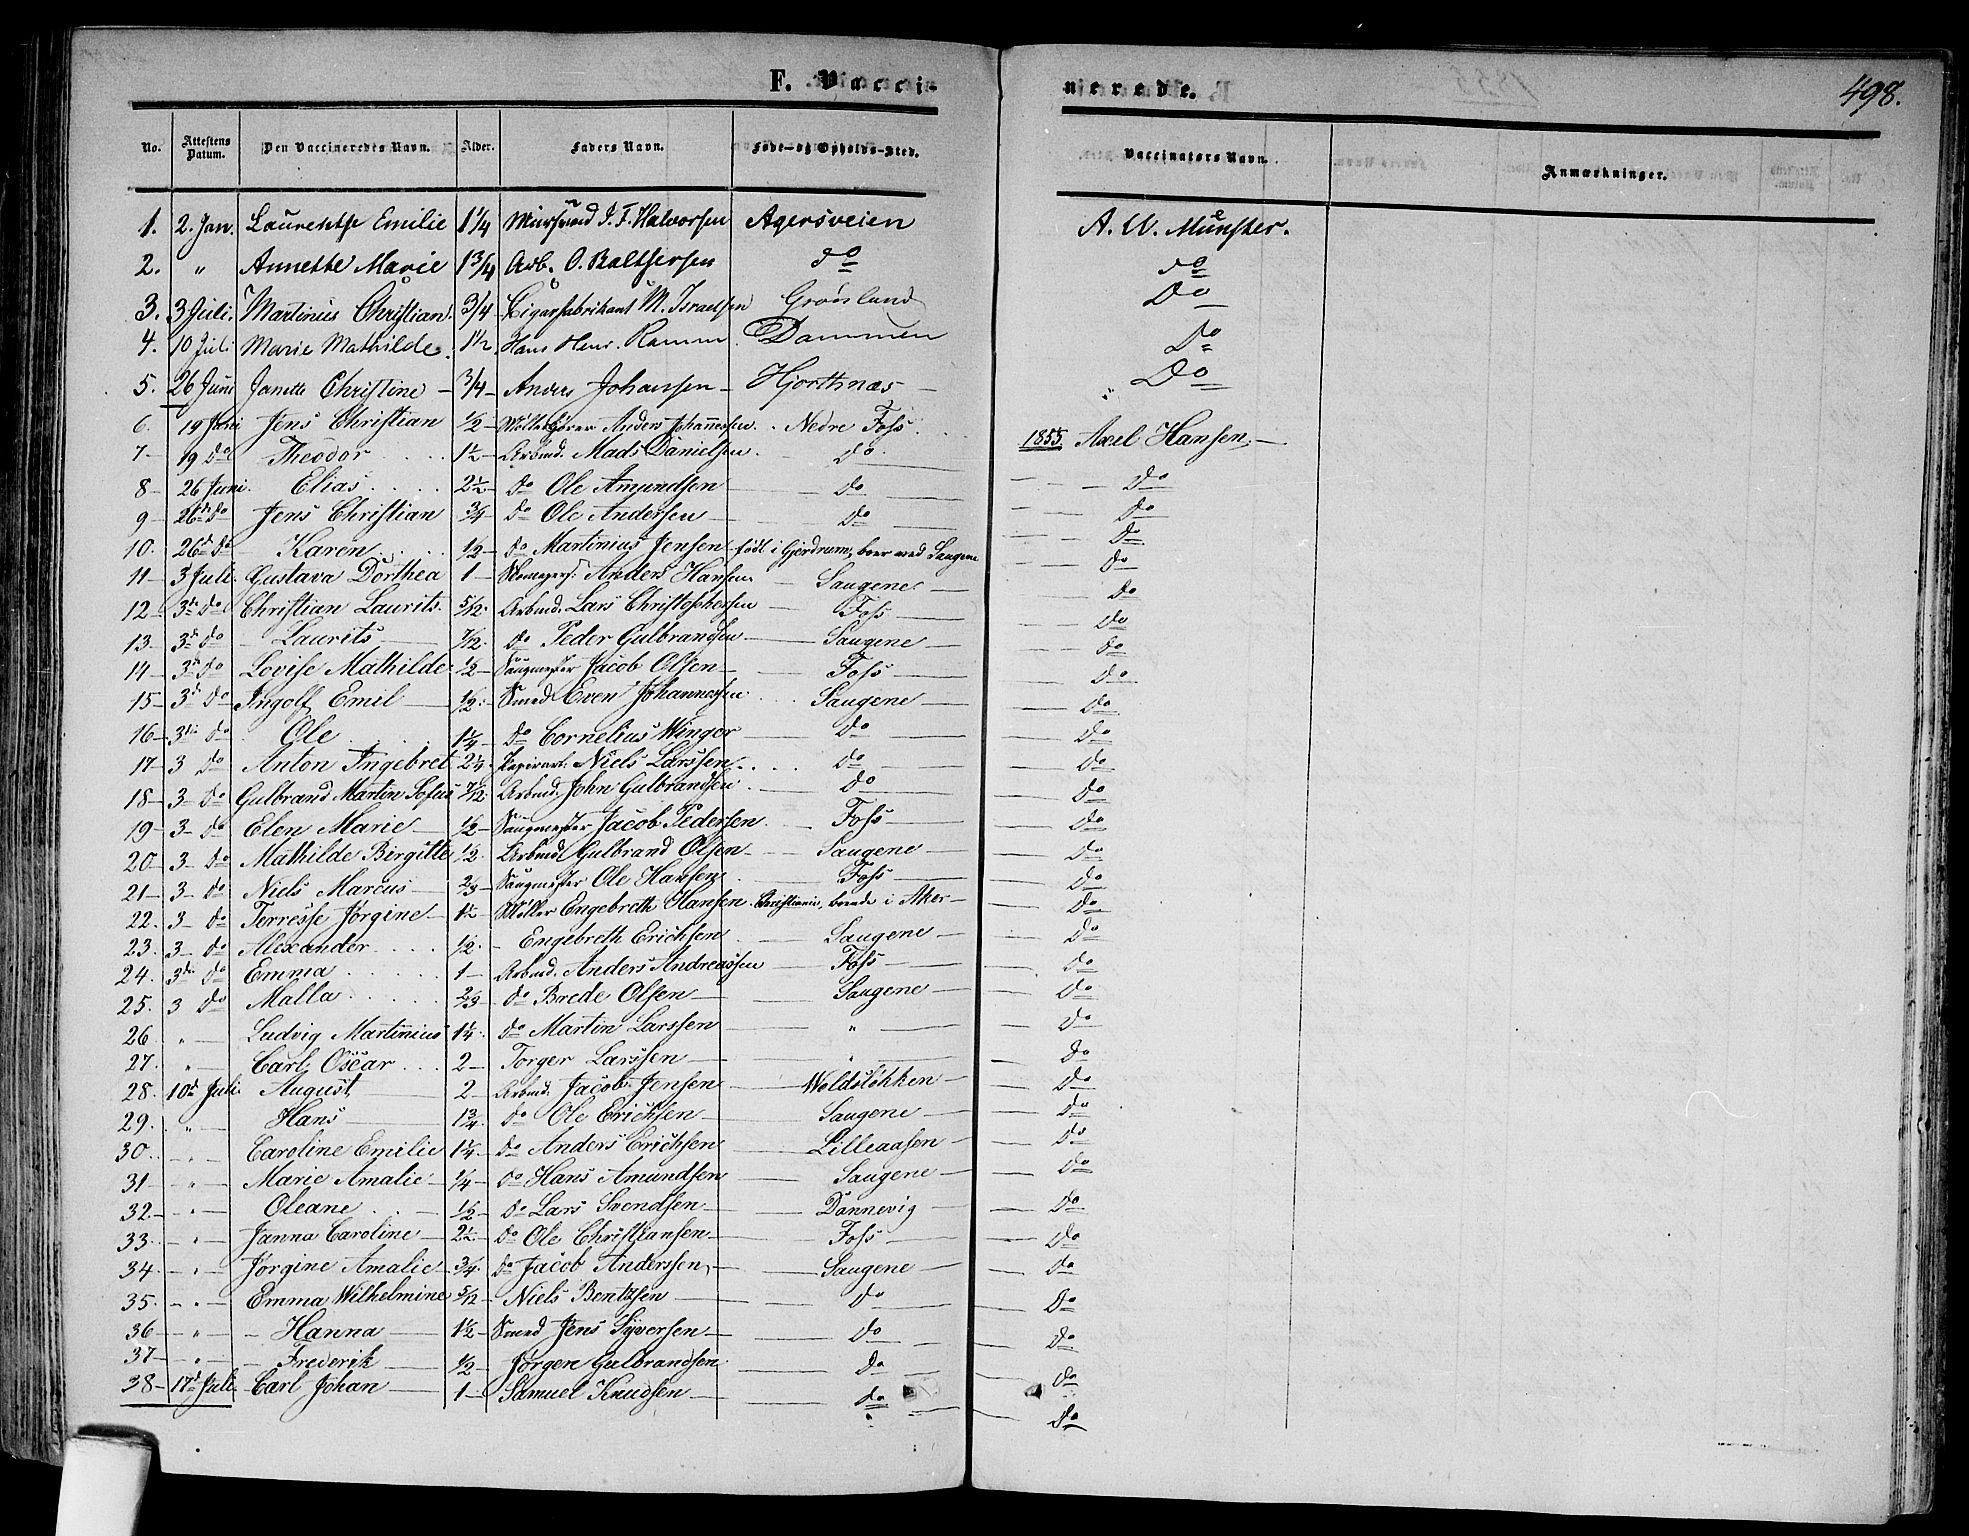 F. Vaccinerede.
498.
No. Attestens Datum. Den Vaccineredes Navn. Alder. Faders Navn. Føde- og Opholds-Sted. Vaccinators Navn. Anmærkninger.
1. 2. Jan. Laurentse Emilie 1 1/4 Muursvend J. F. Halvorsen Agersveien A. W. Munster.
2. " Annette Marie 1 3/4 Arb. O. Balthersen do do
3. 3 Juli. Martinus Christian. 3/4 Cigarfabrikant M. Israelsen Grønland Do
4. 10 Juli Marie Mathilde 1 1/2 Hans Henr. Ramm. Dammen Do
5. 26 Juni Janette Christine 3/4 Anders Johansen Hjorthnæs Do
6. 19 Juni Jens Christian 1/2 Anders Johannesen. Nedre Foss. 1855. Axel Hansen,
7 19 Do Theodor 1 1/2 Arbmd. Mads Danielsen do
8 26 Juni. Elias 2 1/2 do Ole Amundsen do Do
9 26de Do Jens Christian 3/4 do Ole Andersen do Do
10. 26d Do Karen 1/2 do Martinius Jensen født i Gjerdrum, boer ved Saugene Do
11 3 Juli. Gustava Dorthea 1 Anders Hansen. Saugene. Do
12 3de Do Christian Laurits. 5/12. Arbmd. Lars Christophersen Foss Do
13. 3de Do Laurits 7/12. do Peder Gulbrandsen. Saugene Do
14 3de Do Lovise Mathilde 1/2 Saugmester Jacob Olsen Foss Do
15 3de Do Ingolf Emil 1/2. Smed Even Johannesen. Saugene Do
16 3de Do Ole 1 1/4 do Cornelius Winger do Do
17 3 Do Anton Ingebret 2 1/4 Papirarb. Niels Larssen. do Do
18 3 Do Gulbrand Martin Sofus 7/12. Arbmd. John Gulbrandsen. do Do
19 3 Do Elen Marie 1/2 Saugmester Jacob Pedersen. Foss Do
20 3 Do Mathilde Birgitte 1/2. Arbmd. Gulbrand Olsen Saugene Do
21 3 Do Niels Marcus 2/3 Saugmester Ole Hansen Foss Do
22. 3 Do Terresse Jørgine 1 1/2 Møller Engebreth Hansen. Christiania, boende i Aker Do
23. 3 Do Alexander 1/2. Engebreth Erichsen Saugene Do
24. 3de Do Emma 1 Arbmd. Anders Andreassen Foss Do
25. 3 Do Malla 2/3 do Brede Olsen Saugene Do
26 " Ludvig Martinius 1 1/4. do Martin Larssen " Do
27. " Carl Oscar 2 Torger Larssen " Do
28. 10d Juli. August 2 Arbmd. Jacob Jensen Woldsløkken Do
29. " Hans 1 3/4. do Ole Erichsen Saugene Do
30. " Caroline Emilie 1 1/4. do Anders Erichsen Lilleaasen Do
31 " Marie Amalie 1/4 do Hans Amundsen Saugene Do
32. " Oleane 1/2 do Lars Svendsen Dannevig Do
33. " Janna Caroline 2 1/2 do Ole Christiansen Foss Do
34 " Jørgine Amalie 3/4. do Jacob Anderssen, Saugene Do
35. " Emma Wilhelmine 5/12 Niels Bentssen Do Do
36 " Hanna 1 1/2 Smed Jens Syversen do Do
37 " Frederik 1/2 Jørgen Gulbrandsen. do Do
38 17d Juli. Carl Johan 1 Samuel Knudsen do Do